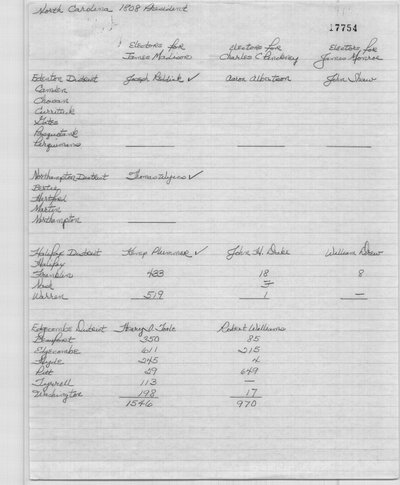 North Carolina 1808 President
17754
Electors for Electors for Electors for
James Madison Charles C Pinckney James Monroe
Edenton District Joseph Riddick ✓ Aaron Albertson John Shaw
Camden
Chowan
Currituck
Gates
Pasquotank
Perquimans
Northampton District Thomas Wynns ✓
Bertie
Hertford
Martin
Northampton
Halifax District Kemp Plummer ✓ John H. Drake William Drew
Halifax
Franklin 433 18 8
Nash 7
Warren 519 1 —
Edgecombe District Henry I. Toole Robert Williams
Beaufort 350 85
Edgecombe 611 215
Hyde 245 4
Pitt 29 649
Tyrrell 113 —
Washington 198 17
1546 970